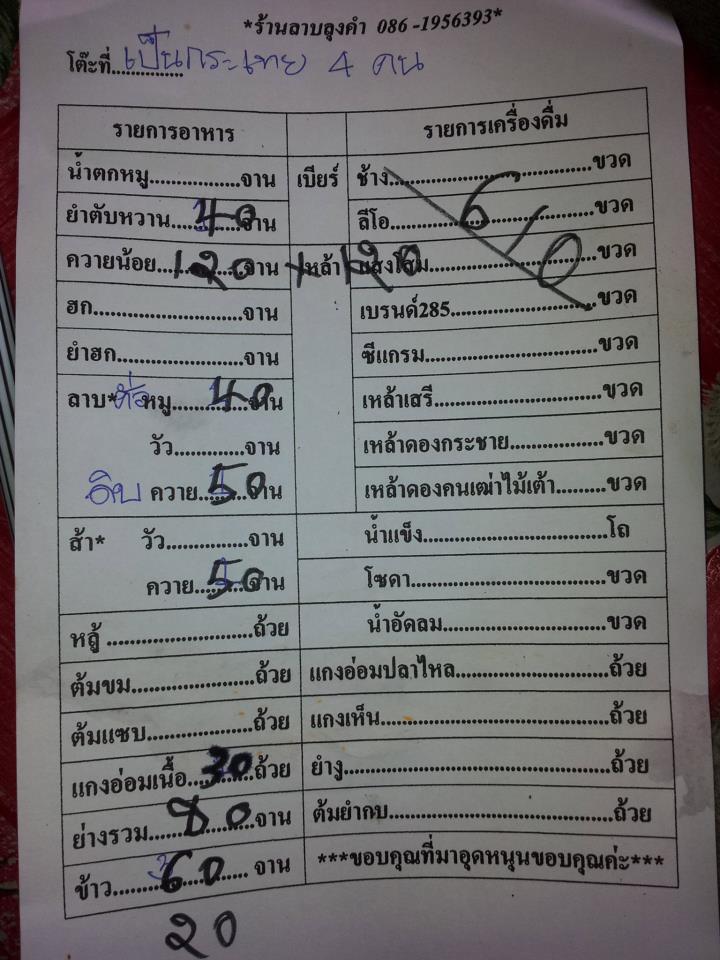 *ร้านลาบลุงคำ 086-1956393*
โต๊ะที่...............เป็นกระเทย 4 คน
รายการอาหาร รายการเครื่องดื่ม
น้ำตกหมู..................จาน เบียร์ ช้าง........................................ขวด
ยำตับหวาน..40..จาน ลีโอ........................................ขวด
ควายน้อย...120..จาน เหล้า 120 แสงโสม........................................ขวด
610
ฮก..............................จาน เบรนด์285............................ขวด
ยำฮก.........................จาน ซีแกรม..................................ขวด
ลาบ* หมู.....40....จาน เหล้าเสรี.................................ขวด
วัว..............จาน เหล้าดองกระชาย...................ขวด
ดิบ ควาย..50..จาน เหล้าดองคนเฒ่าไม้เต้า..........ขวด
ส้า* วัว................จาน น้ำแข็ง....................................โถ
ควาย..50..จาน โซดา.......................................ขวด
หลู้ .............................ถ้วย น้ำอัดลม.................................ขวด
ต้มขม.........................ถ้วย แกงอ่อมปลาไหล............................ถ้วย
ต้มแซบ.....................ถ้วย แกงเห็น..........................................ถ้วย
แกงอ่อมเนื้อ..30..ถ้วย ยำงู..................................................ถ้วย
ย่างรวม...80...จาน ต้มยำกบ.......................................ถ้วย
ข้าว.....60........ จาน ***ขอบคุณที่มาอุดหนุนขอบคุณค่ะ***
20